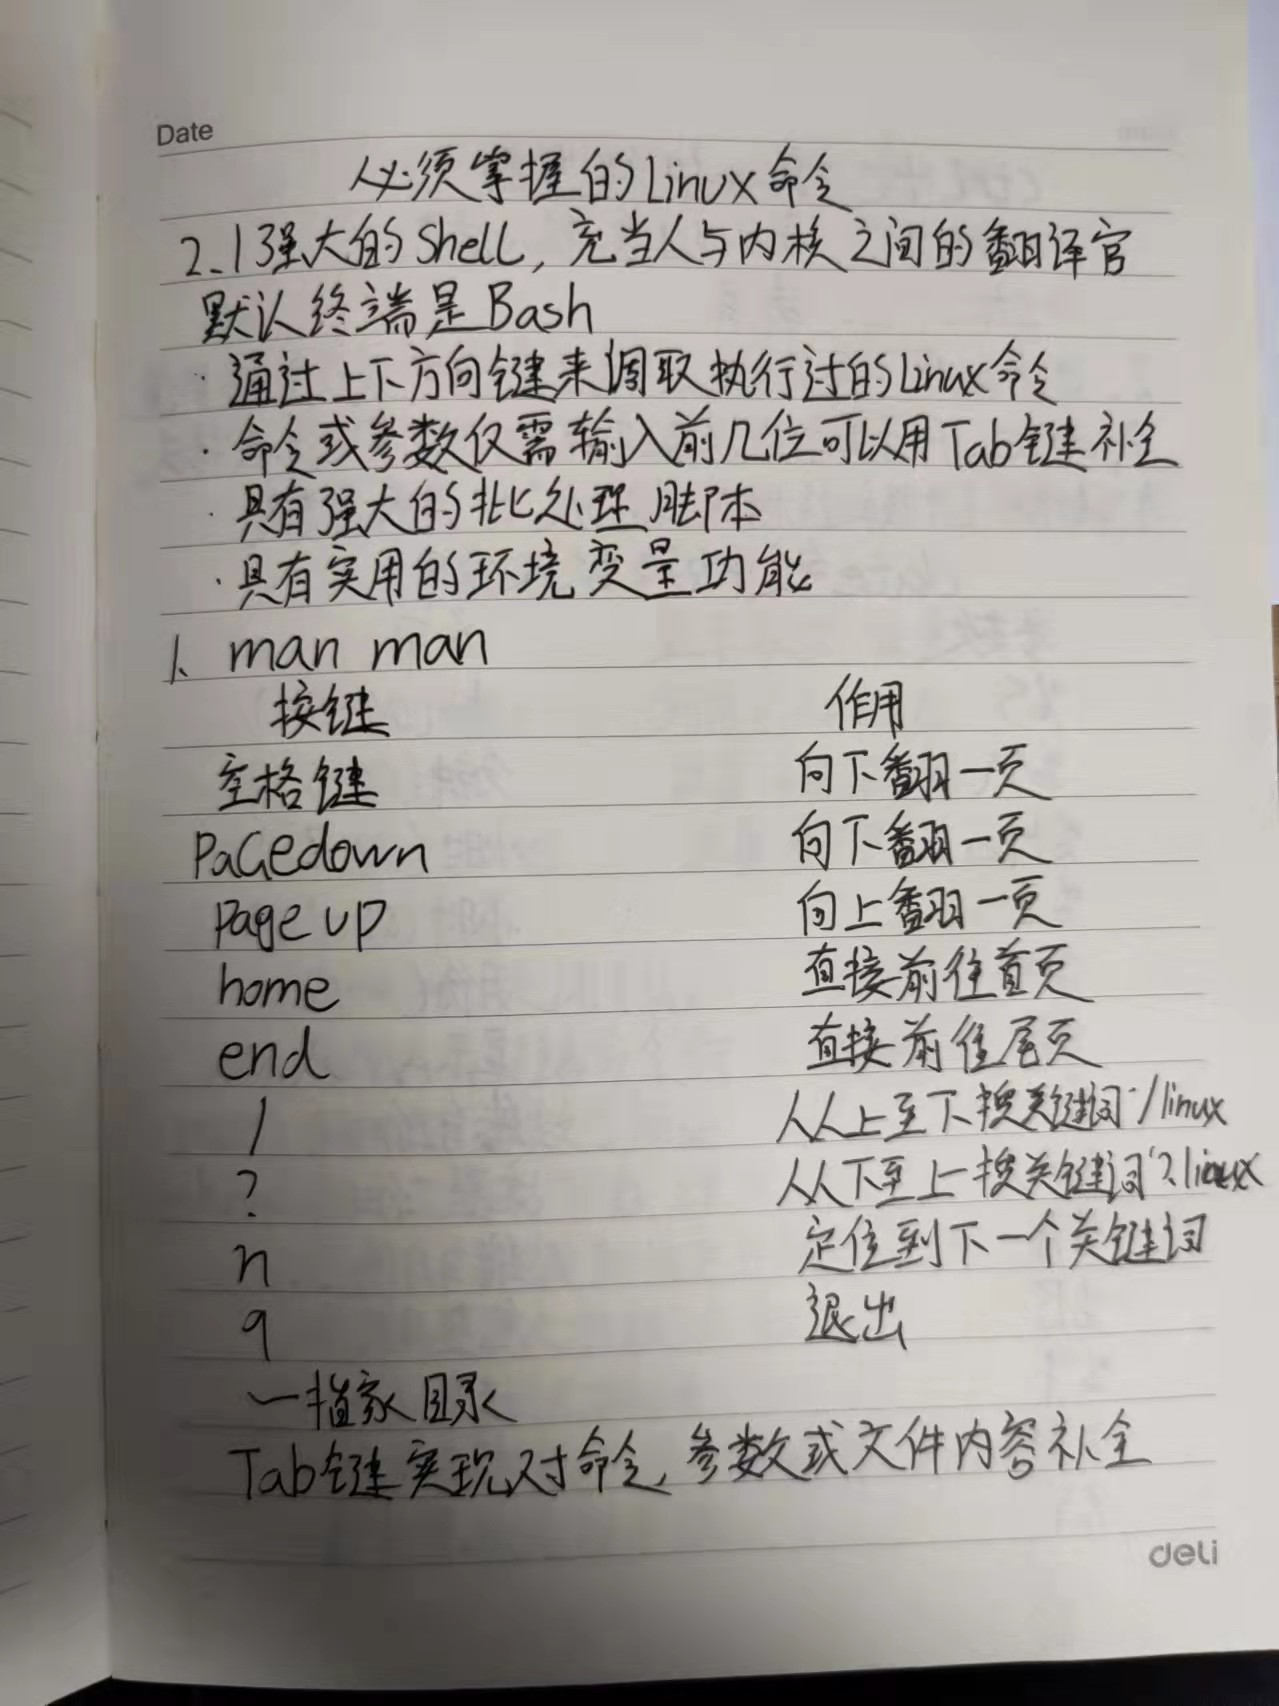 Date
必须掌握的Linux命令
2.1强大的Shell,充当人与内核之间的翻译官
默认终端是Bash
·通过上下方向键来调取执行过的Linux命令
·命令或参数仅需输入前几位可以用Tab键补全
·具有强大的批处理脚本
·具有实用的环境变量功能
1、man man
按键 作用
空格键 向下翻一页
PaGedown 向下翻一页
Page up 向上翻一页
home 直接前往首页
end 直接前往尾页
/ 从上至下搜关键词'/linux
? 从下至上搜关键词'?linux
n 定位到下一个关键词
q 退出
~指家目录
Tab键实现对命令,参数或文件内容补全
deli